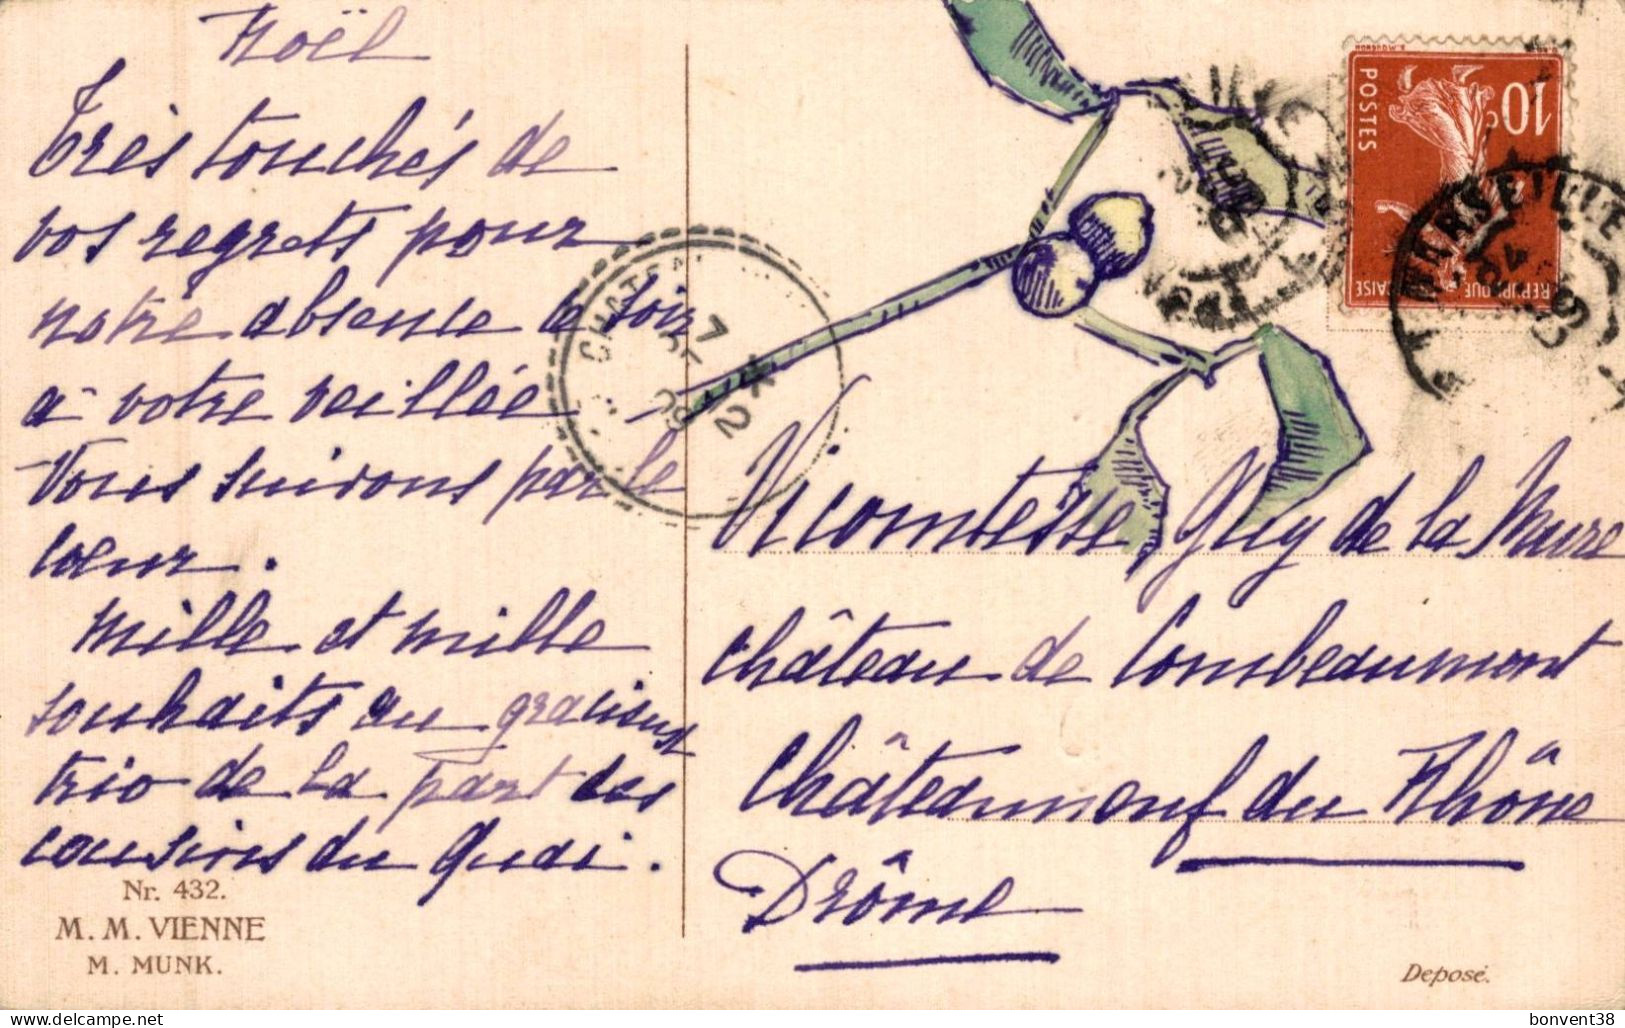 Noël
Très touchés de
vos regrets pour
notre absence ce soir
à votre veillée
Vous suivons par le
cœur.
Mille et mille
souhaits au gracieux
trio de la part des
cousins du Quai.
Nr. 432.
M. M. VIENNE
M. MUNK.
CHATEAU
7
09
12
10c
POSTES
REPUBLIQUE FRANÇAISE
MARSEILLE
Vicomtesse Guy de la Mure
Château de Combeaumont
Châteauneuf du Rhône
Drôme
Déposé.
bonvent38